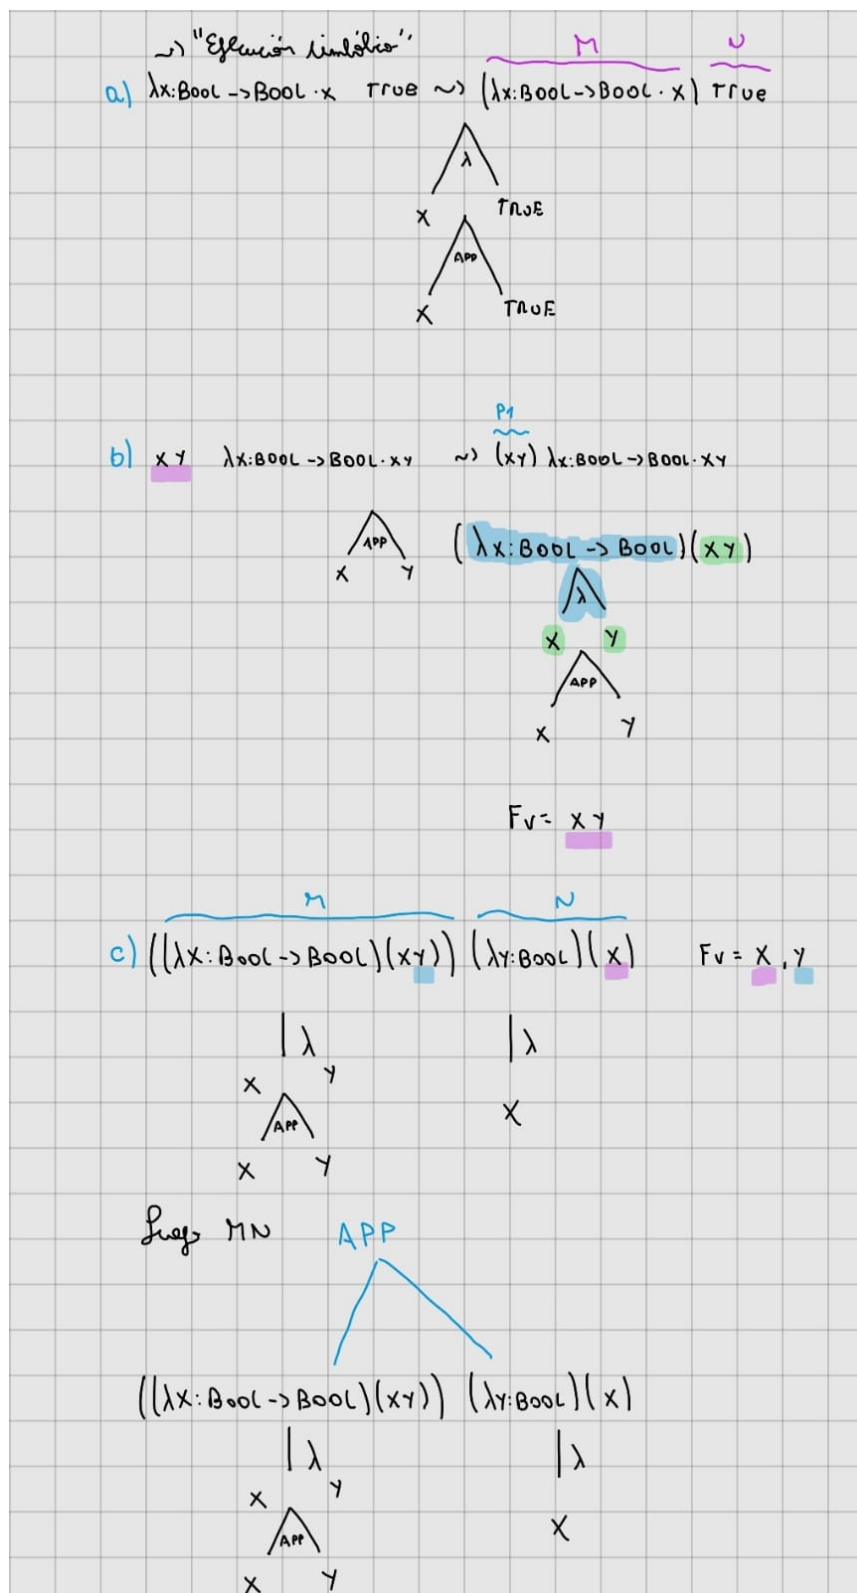 ~> "Ejecución simbólica"
M N
a) λx:BOOL->BOOL·x TRUE ~> (λx:BOOL->BOOL·x) TRUE
λ
X TRUE
APP
X TRUE
P1
b) XY λX:BOOL->BOOL·XY ~> (XY) λX:BOOL->BOOL·XY
APP (λX:BOOL->BOOL)(XY)
X Y λ
X Y
APP
X Y
Fv= XY
M N
c) ((λX:BOOL->BOOL)(XY)) (λY:BOOL)(X) Fv= X,Y
λ λ
X Y
APP X
X Y
Luego MN APP
((λX:BOOL->BOOL)(XY)) (λY:BOOL)(X)
λ λ
X Y
APP X
X Y